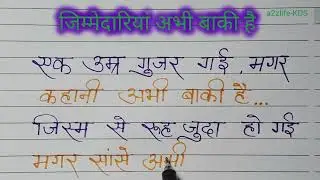 a2zlife-KDS
जिम्मेदारियां अभी बाकी है
एक उम्र गुजर गई, मगर
कहानी अभी बाकी है...
जिस्म से रूह जुदा हो गई
मगर सांसे अभी